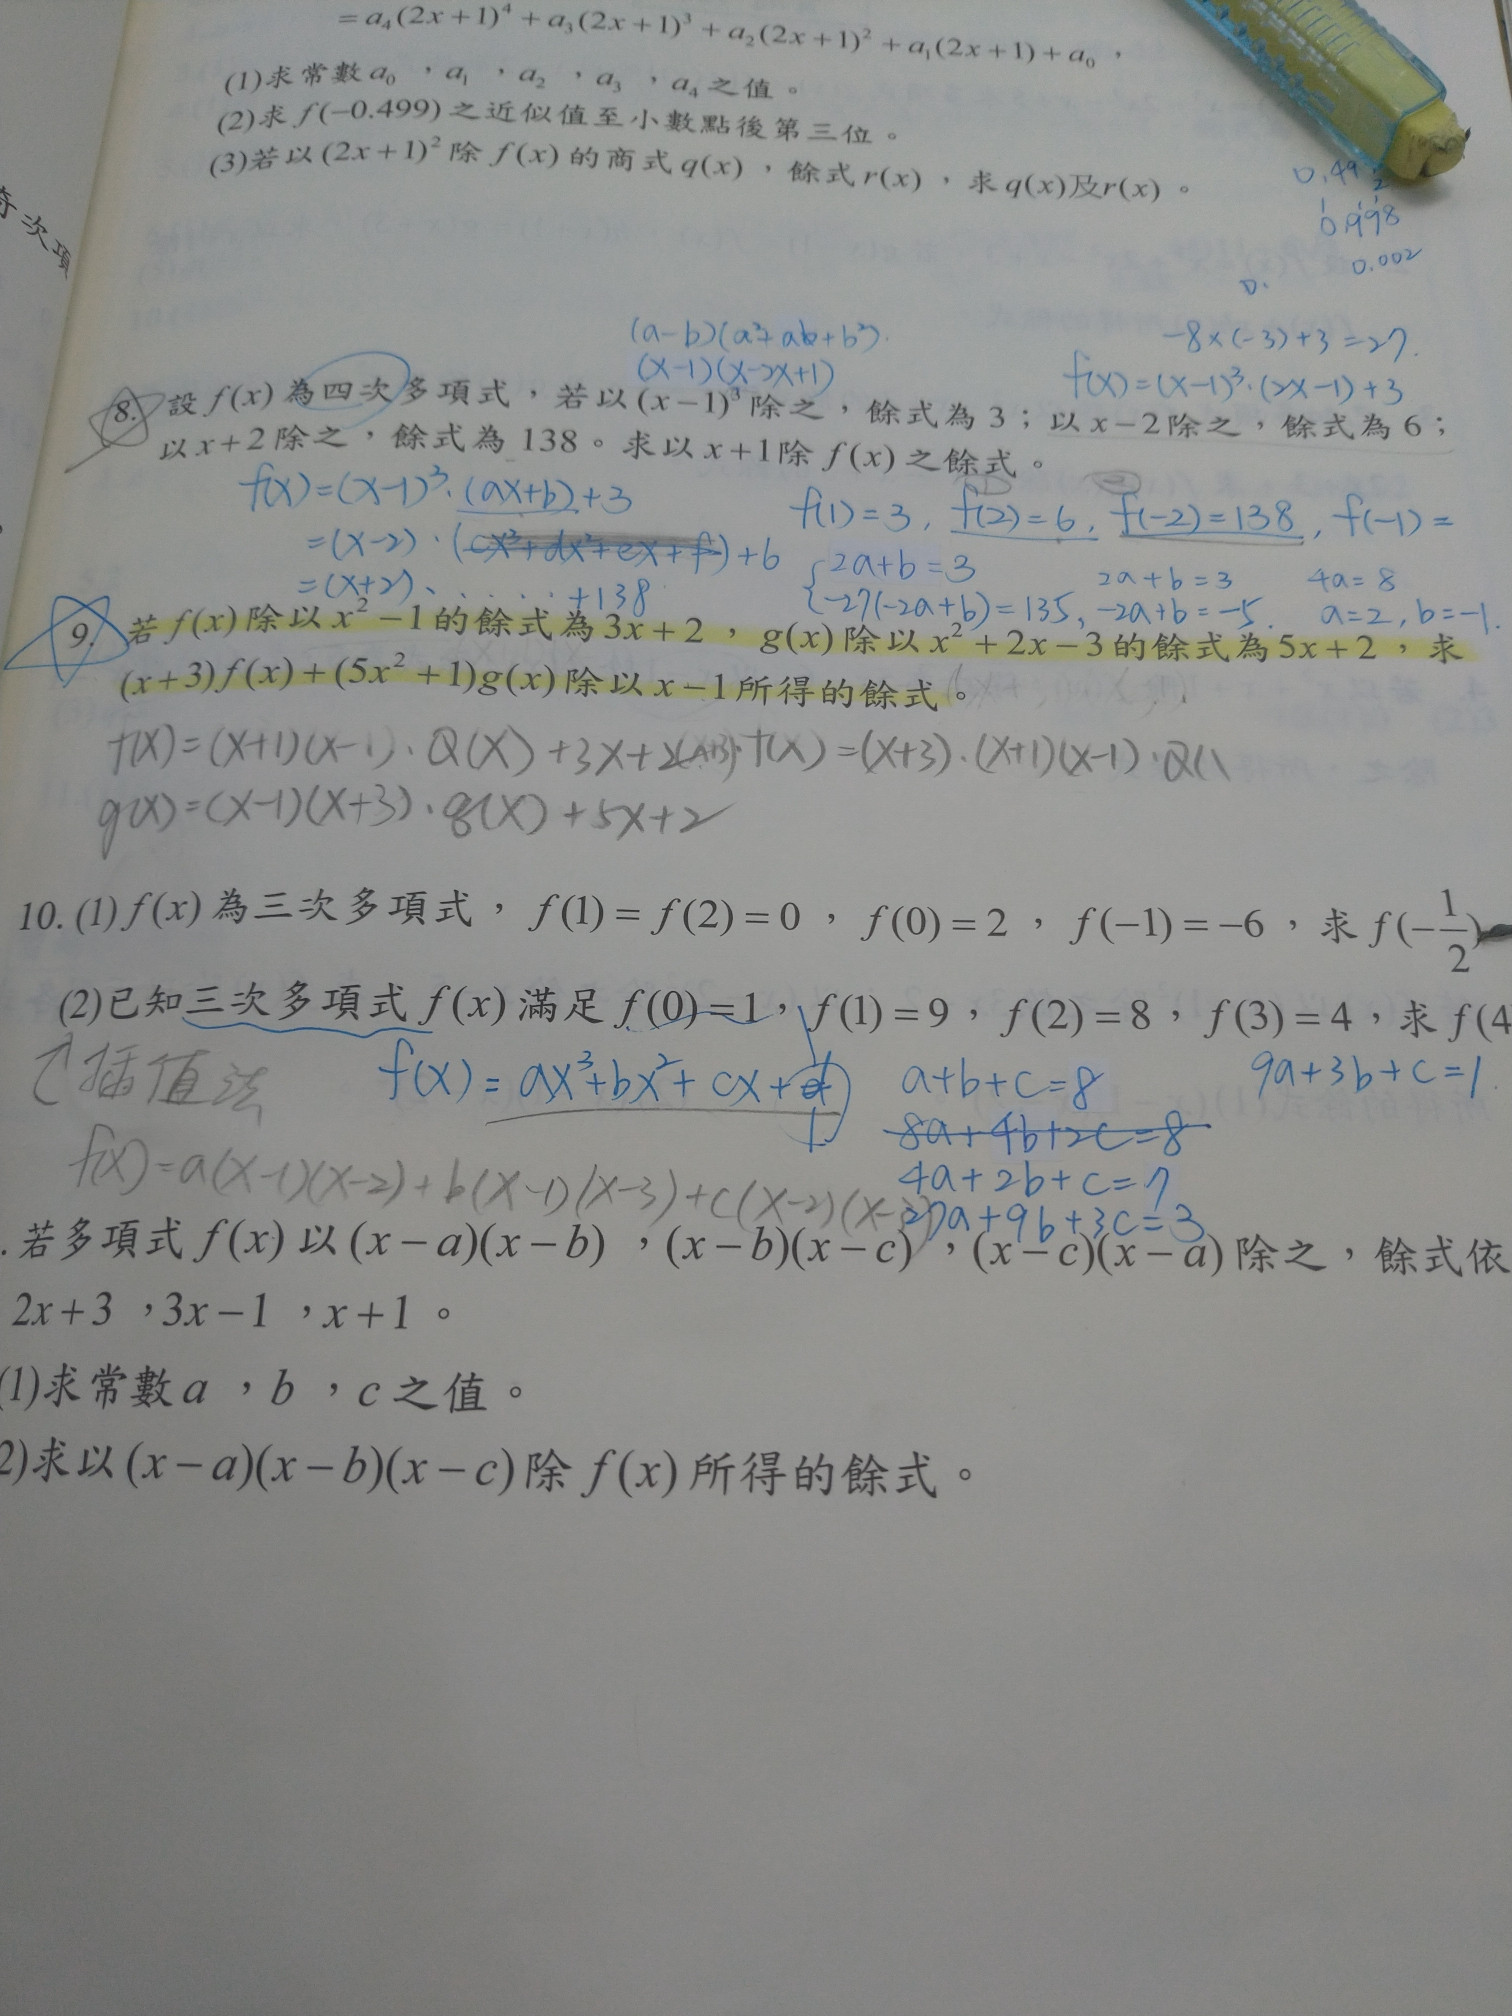 = a₄(2x+1)⁴ + a₃(2x+1)³ + a₂(2x+1)² + a₁(2x+1) + a₀，
(1)求常數a₀，a₁，a₂，a₃，a₄之值。
(2)求f(−0.499)之近似值至小數點後第三位。
(3)若以(2x+1)²除f(x)的商式q(x)，餘式r(x)，求q(x)及r(x)。
奇次項
0.998
0.002
0.
(a-b)(a²+ab+b²).
(x-1)(x-2x+1)
-8×(-3)+3=27.
f(x)=(x-1)³·(2x-1)+3
8. 設f(x)為四次多項式，若以(x−1)³除之，餘式為3；以x−2除之，餘式為6；
以x+2除之，餘式為138。求以x+1除f(x)之餘式。
f(x)=(x-1)³·(ax+b)+3
f(1)=3, f(2)=6, f(-2)=138, f(-1)=
=(x-2)·(cx³+dx²+ex+f)+6
2a+b=3 2a+b=3 4a=8
=(x+2)、. . . . . +138
-27(-2a+b)=135, -2a+b=-5. a=2, b=-1.
9. 若f(x)除以x²−1的餘式為3x+2，g(x)除以x²+2x−3的餘式為5x+2，求
(x+3)f(x)+(5x²+1)g(x)除以x−1所得的餘式。
f(x)=(x+1)(x-1)·Q(x)+3x+2 (x+3)·f(x)=(x+3)·(x+1)(x-1)·Q(
g(x)=(x-1)(x+3)·q(x)+5x+2
10. (1)f(x)為三次多項式，f(1)=f(2)=0，f(0)=2，f(−1)=−6，求f(−1/2)
(2)已知三次多項式f(x)滿足f(0)=1，f(1)=9，f(2)=8，f(3)=4，求f(4
插值法
f(x)=ax³+bx²+cx+d
1
a+b+c=8
9a+3b+c=1
8a+4b+2c=8
4a+2b+c=7
f(x)=a(x-1)(x-2)+b(x-1)(x-3)+c(x-2)(x-3)
27a+9b+3c=3
.若多項式f(x)以(x−a)(x−b)，(x−b)(x−c)，(x−c)(x−a)除之，餘式依
2x+3，3x−1，x+1。
(1)求常數a，b，c之值。
2)求以(x−a)(x−b)(x−c)除f(x)所得的餘式。